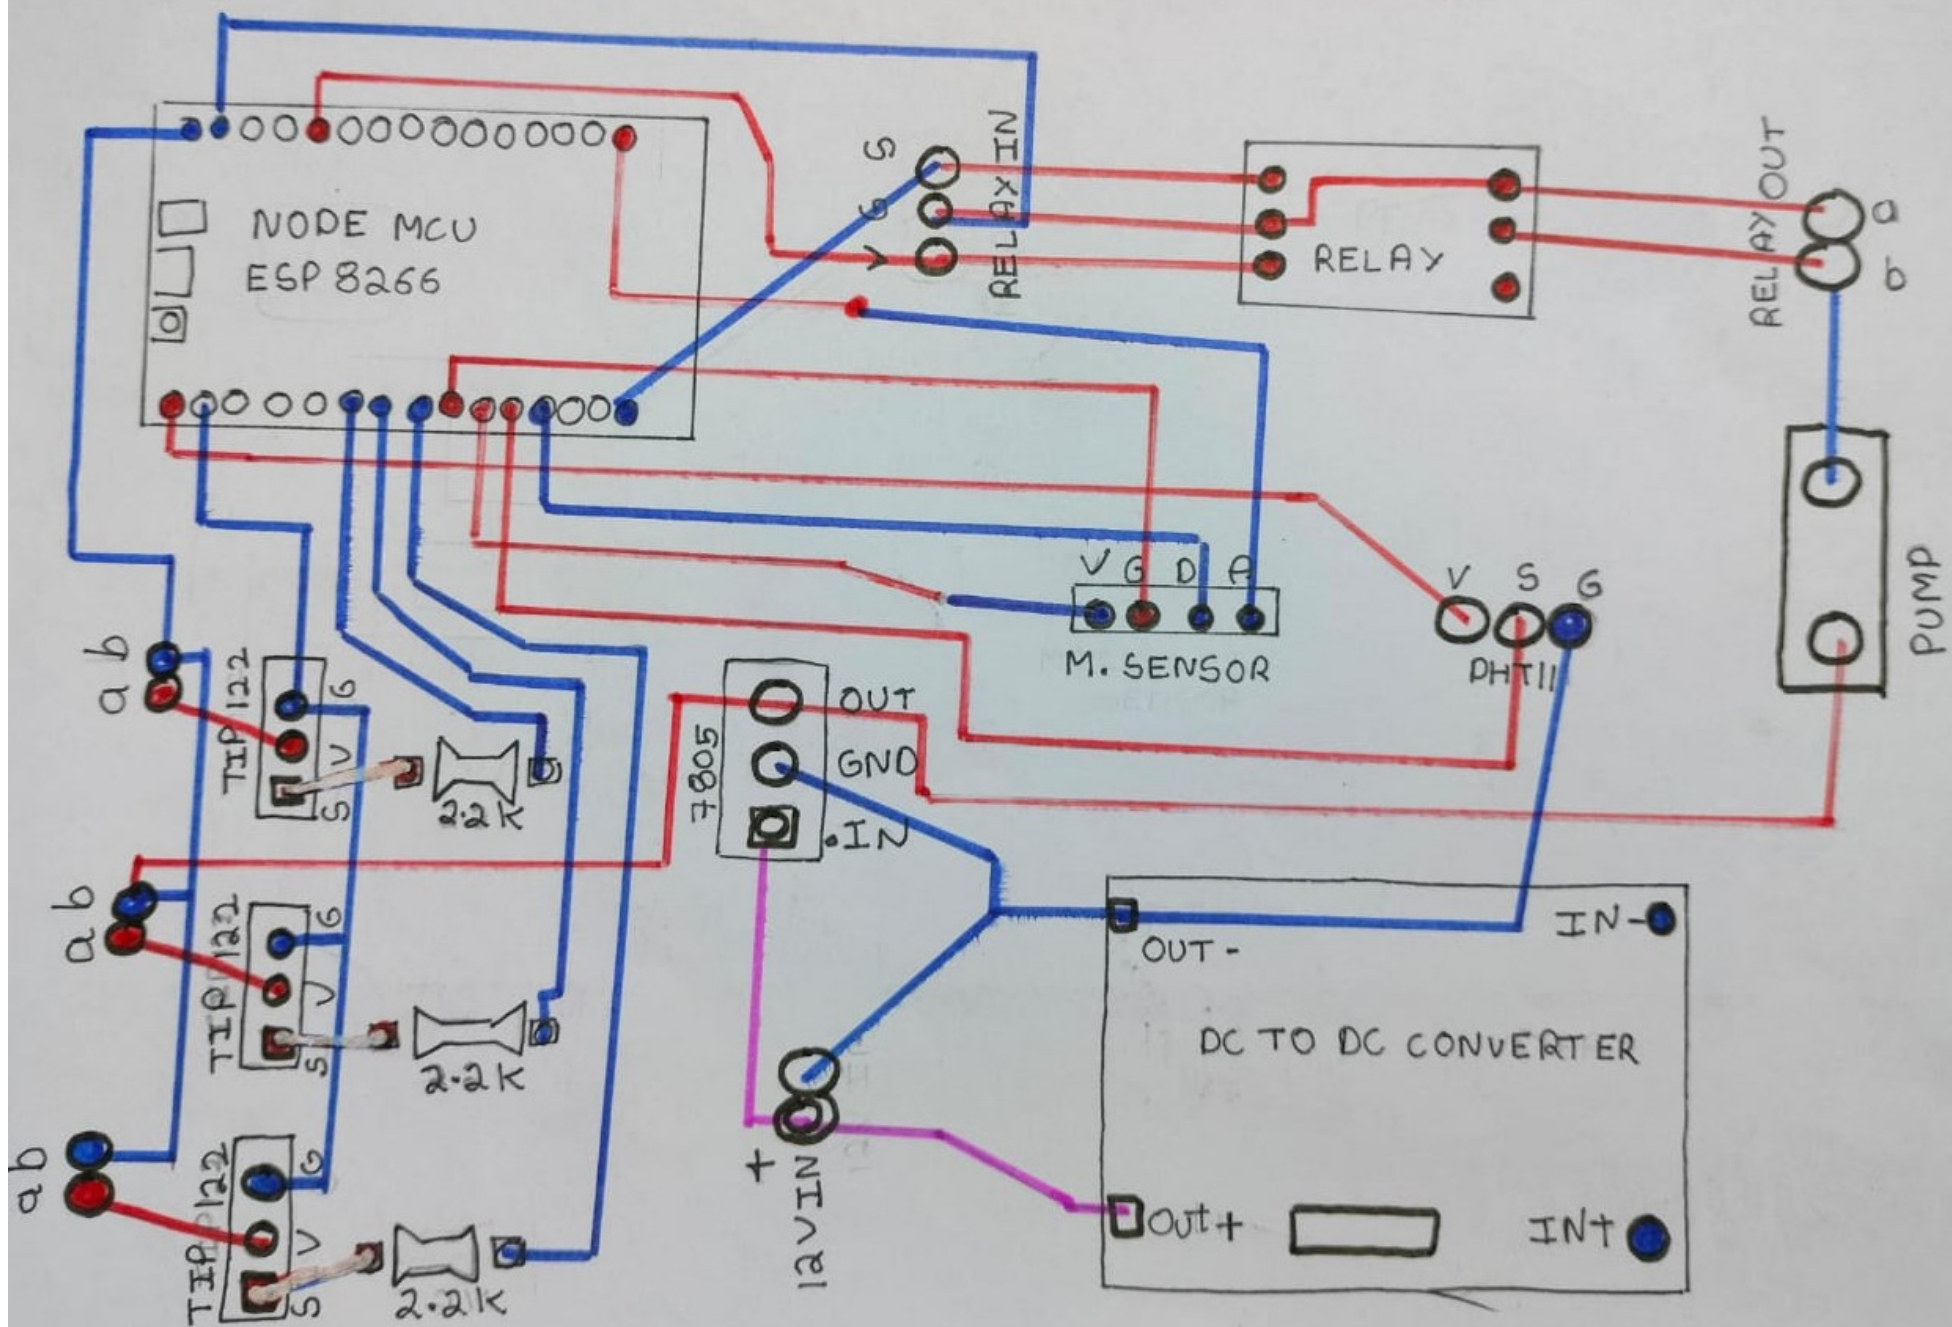 NODE MCU
ESP 8266
S
G
V
RELAY IN
RELAY
RELAY OUT
a
b
V G D A
M. SENSOR
V S G
PHT11
PUMP
a b
TIP122
G
V
S
2.2K
7805
OUT
GND
.IN
a b
TIP122
G
V
S
2.2K
a b
TIP122
G
V
S
2.2K
+
12V IN
OUT -
IN-
DC TO DC CONVERTER
OUt+
IN+